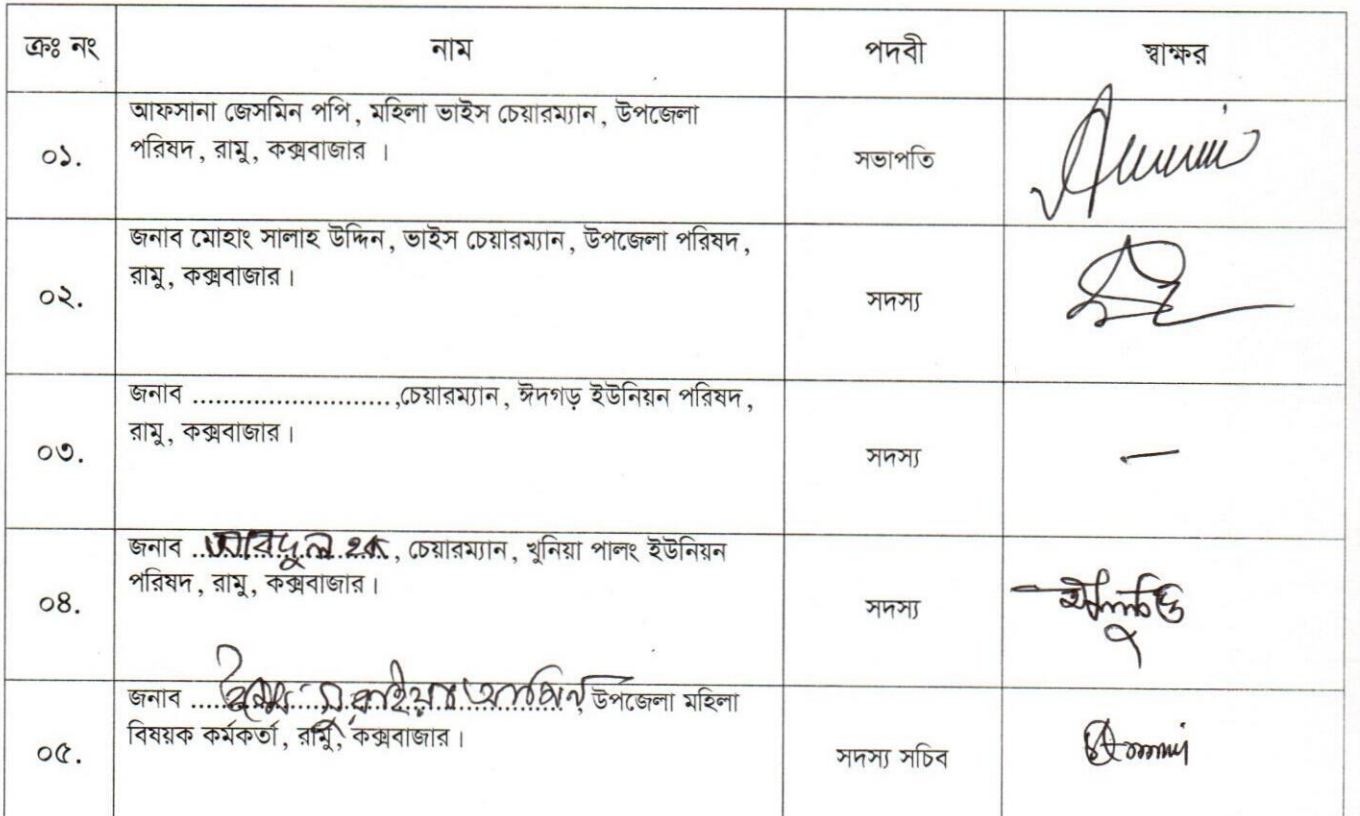 ক্রঃ নং নাম পদবী স্বাক্ষর
আফসানা জেসমিন পপি, মহিলা ভাইস চেয়ারম্যান, উপজেলা
০১. পরিষদ, রামু, কক্সবাজার । সভাপতি
জনাব মোহাং সালাহ উদ্দিন, ভাইস চেয়ারম্যান, উপজেলা পরিষদ,
রামু, কক্সবাজার।
০২. সদস্য
জনাব ..........................,চেয়ারম্যান, ঈদগড় ইউনিয়ন পরিষদ,
রামু, কক্সবাজার।
০৩. সদস্য –
জনাব ..আবদুল হক, চেয়ারম্যান, খুনিয়া পালং ইউনিয়ন
পরিষদ, রামু, কক্সবাজার।
০৪. সদস্য
জনাব ..... উপজেলা মহিলা
বিষয়ক কর্মকর্তা, রামু, কক্সবাজার।
০৫. সদস্য সচিব